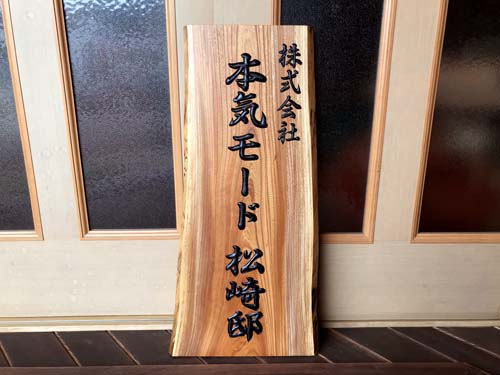 株式会社
本気モード 松崎邸